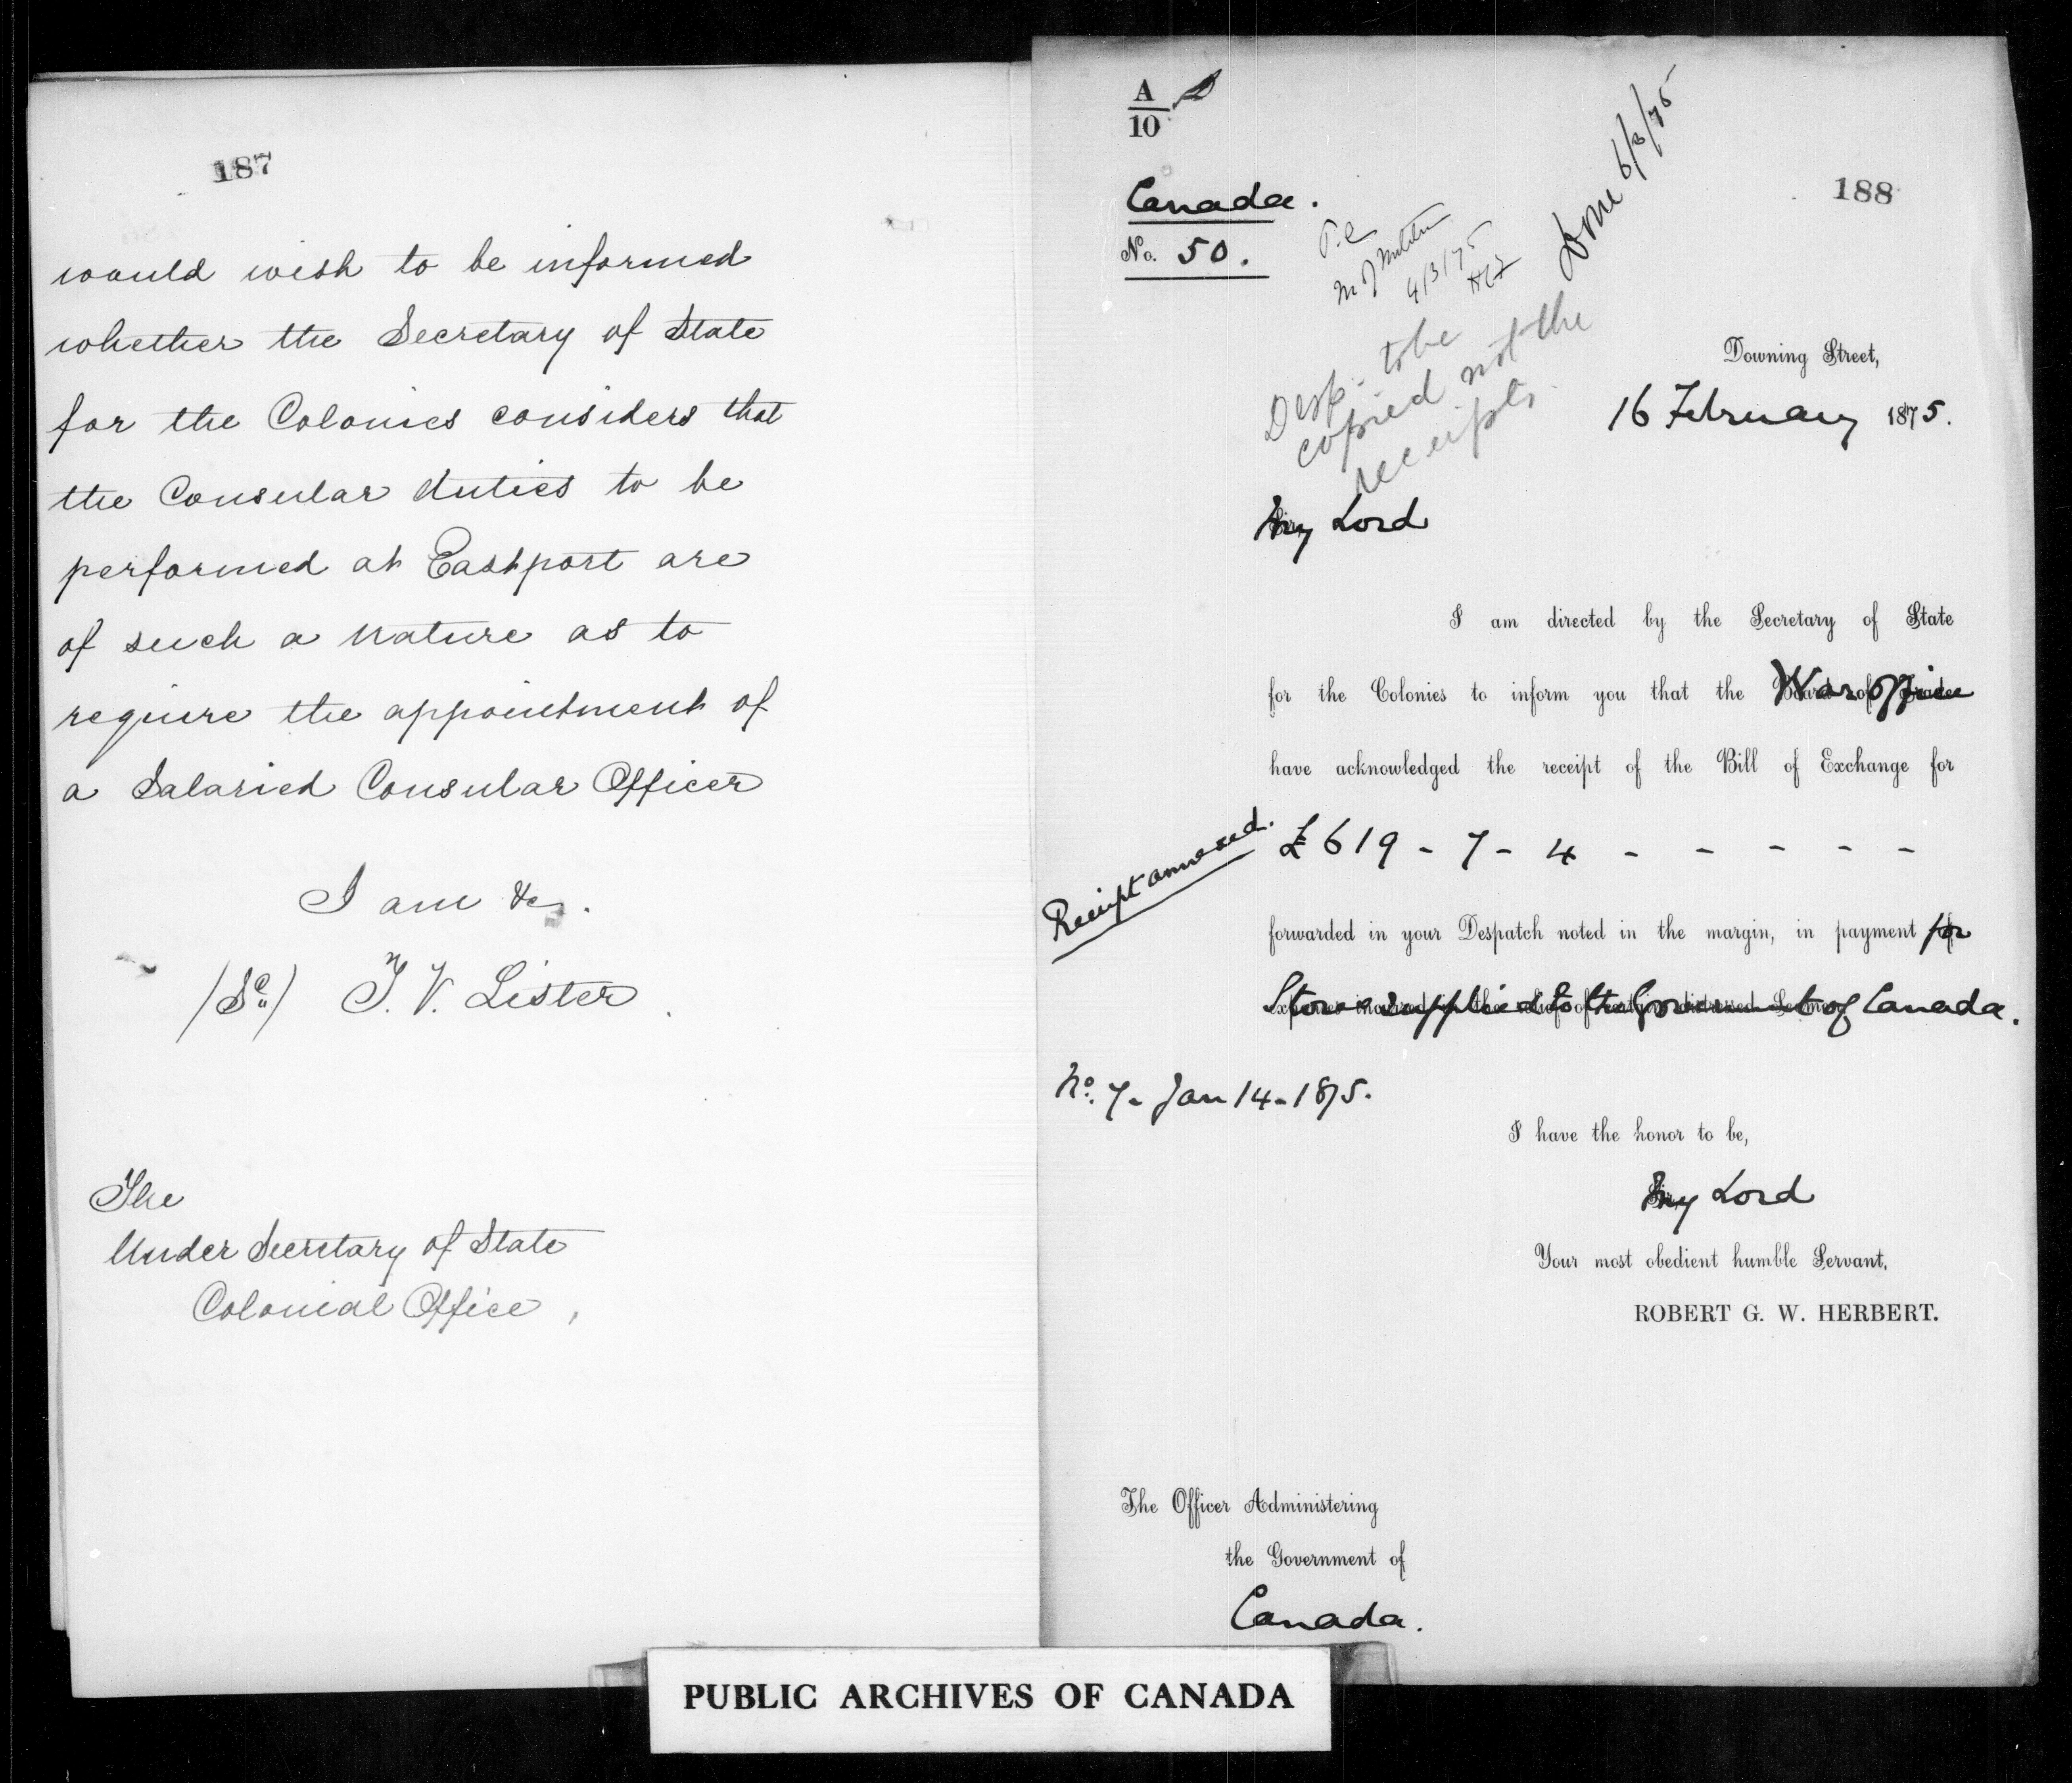 187
would wish to be informed
whether the Secretary of State
for the Colonies considers that
the Consular duties to be
performed at Eastport are
of such a nature as to
require the appointment of
a Salaried Consular Officer
I am &c.
T. V. Lister
The
Under Secretary of State
Colonial Office,
A
10
Canada.
No. 50.
188
4/3/75
Done 6/3/75
Desp. to be
copied not the
receipts
Downing Street,
16 February 1875.
My Lord
I am directed by the Secretary of State
for the Colonies to inform you that the War Office
have acknowledged the receipt of the Bill of Exchange for
£619-7-4 - - - - -
Receipt annexed.
forwarded in your Despatch noted in the margin, in payment for
Stores supplied to the Government of Canada.
No. 7- Jan 14-1875.
I have the honor to be,
My Lord
Your most obedient humble Servant,
ROBERT G. W. HERBERT.
The Officer Administering
the Government of
Canada.
PUBLIC ARCHIVES OF CANADA